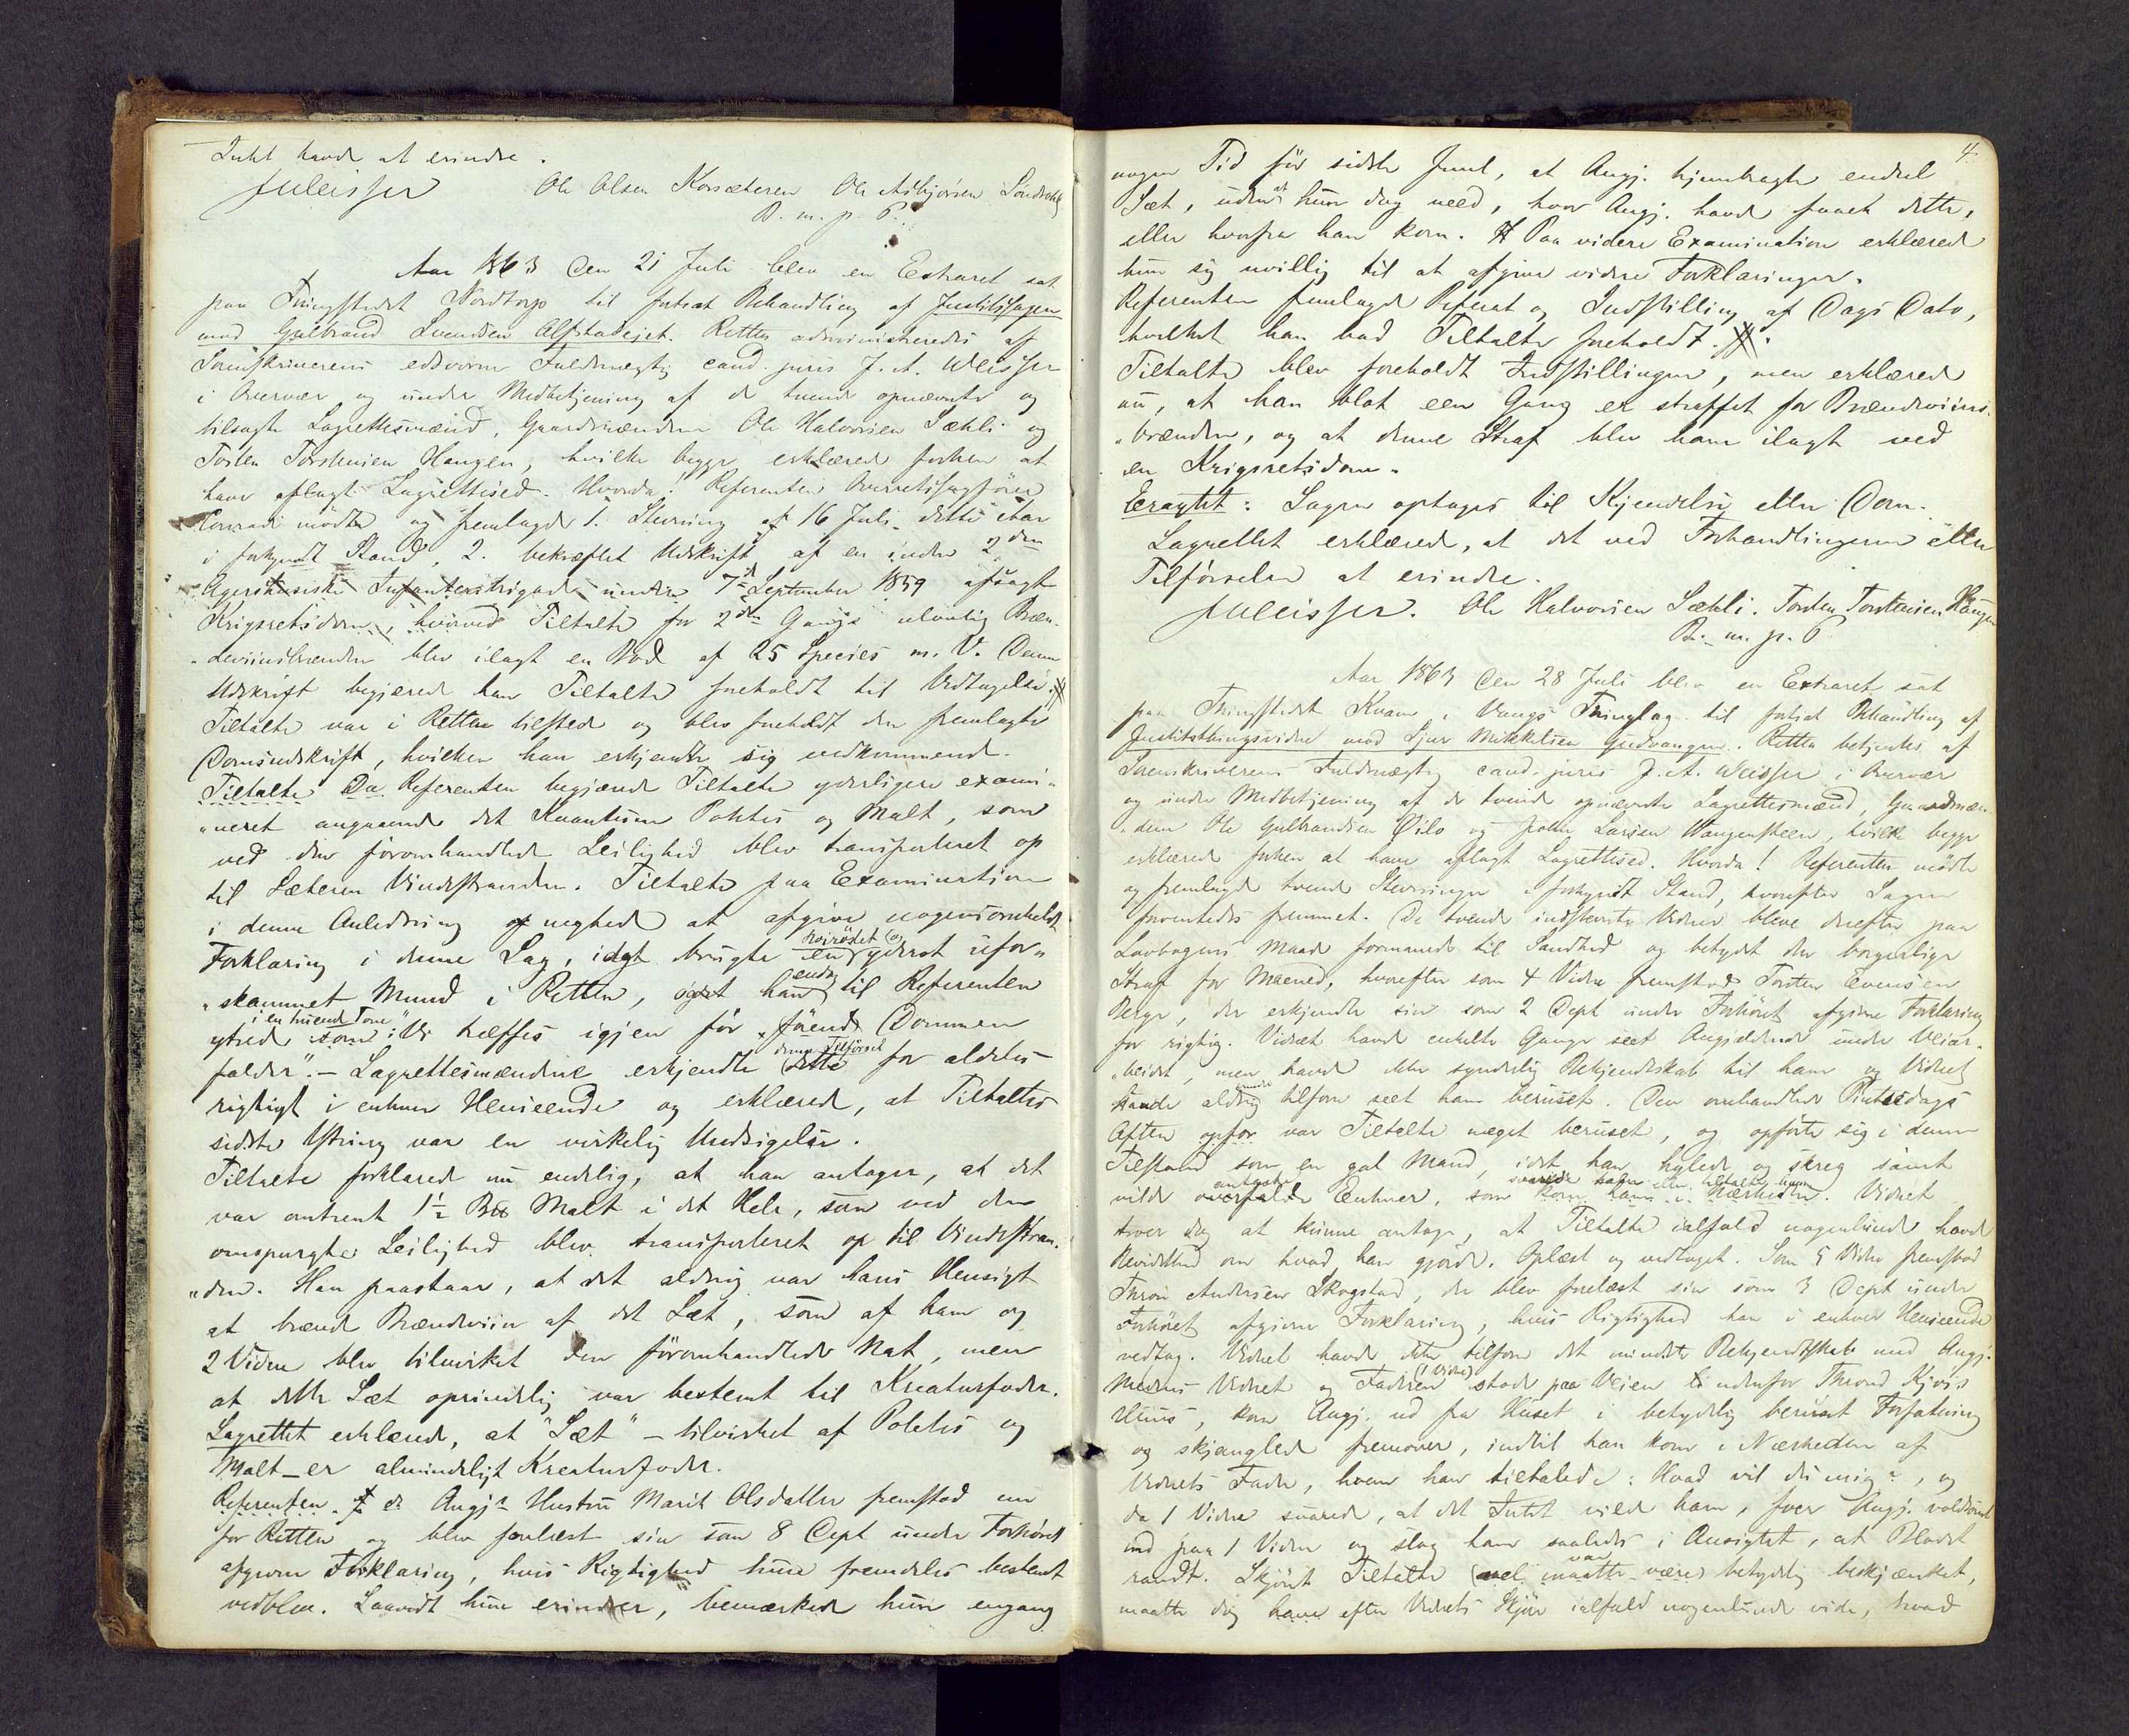 Intet havde at erindre.
JAWeisser Ole Olsen Korsæteren Ole Asbjørsen
B. m. p. P.
Aar 1863 den 21 Juli blev en Extraret sat
paa Thingstedet Nordtorp til fortsat Behandling af Justitssagen
mod Gulbrand Svendsen Alfstadejet. Retten administreredes af
Sorenskriverens edsvorne Fuldmægtig cand. juris J. A. Weisser
i Overvær og under Medbetjening af de tvende opnævnte og
tilsagte Lagrettesmænd, Gaardmændene Ole Halvorsen Sæhli og
Torsten Torstensen Haugen, hvilke begge erklærede forhen at
have aflagt Lagrettesed. Hvorda! Referenten Overretssagfører
Conradi mødte og fremlagde 1. Stevning af 16 Juli dette Aar
i forkyndt Stand, 2. bekræftet Udskrift af en under 2den
Agershusiske Infanteribrigade under 7de September 1859 afsagt
Krigsretsdom, hvorved Tiltalte for 2den Gangs ulovlig Bræn-
„deviinsbrænden blev ilagt en Bod af 25 Species m. V. Denne
Udskrift begjærede han Tiltalte foreholdt til Vedtagelse.
Tiltalte var i Retten tilstede og blev foreholdt den fremlagte
Domsudskrift, hvilken han erkjendte sig vedkommende.
Tiltalte Da Referenten begjærede Tiltalte yderligere exami-
„neret angaaende det Kvantum Poteter og Malt, som
ved den foromhandlede Leilighed blev transporteret op
til Sæteren Vindstranden. Tiltalte paa Examination
i denne Anledning of negtede at afgive nogensomhelst
Forklaring i denne Sag, idet brugte en høirøstet og yderst ufor-
„skammet Mund i Retten, idet han endog til Referenten
ytrede i en truende Tone som: „Vi træffes igjen før, førend Dommen
falder“. – Lagrettesmændene erkjendte dette denne Tilførsel for aldeles
rigtigt i enhver Henseende og erklærede, at Tiltaltes
sidste Ytring var en virkelig Undsigelse.
Tiltalte forklarede nu endelig, at han antager, at det
var omtrent 1½ Malt i det Hele, som ved den
omspurgte Leilighed blev transporteret op til Vindstran-
„den. Han paastaar, at det aldrig var hans Hensigt
at brænde Brændeviin af det Sæt, som af ham og
2 Vidne blev tilvirket den foromhandlede Nat, men
at dette Sæt oprindelig var bestemt til Kreaturfoder.
Lagrettet erklærede, at “Sæt“ – tilvirket af Poteter og
Malt – er almindeligt Kreaturfoder.
Referenten. f de Angj.s Hustru Marit Olsdatter fremstod nu
for Retten og blev forelæst sin som 8 Dept under Forhøret
afgivne Forklaring, hvis Rigtighed hun fremdeles bestemt
vedblev. Saavidt hun erindrer, bemærkede hun engang
4.
nogen Tid før sidste Juul, at Angj. hjembragte endeel
Sæt, uden at hun dog veed, hvor Angj. havde faaet dette,
eller hvorfra han kom. Paa videre Examination erklærede
hun sig uvillig til at afgive videre Forklaringer.
Referenten fremlagde Referat og Indstilling af Dags Dato,
hvilket han bad Tiltalte foreholdt.
Tiltalte blev foreholdt Indstillingen, men erklærede
nu, at han blot een Gang er straffet for Brændeviins-
„brænden, og at denne Straf blev ham ilagt ved
en Krigsretsdom.
Eragtet: Sagen optages til Kjendelse eller Dom.
Lagrettet erklærede, at det ved Forhandlingerne eller
Tilførselen at erindre.
JAWeisser. Ole Halvorsen Sæhli. Torsten Torstensen Haugen
B. m. p. P.
Aar 1863 den 28 Juli blev en Extraret sat
paa Thingstedet Kvam i Vangs Thinglag til fortsat Behandling af
Justitsthingsvidne mod Sjur Mikkelsen Gudvangen. Retten betjentes af
Sorenskriverens Fuldmægtig cand. juris J. A. Weisser i Overvær
og under Medbetjening af de tvende opnævnte Lagrettesmænd, Gaardmæn-
„dene Ole Gulbrandsen Øilo og Larsen Wangensteen, hvilke begge
erklærede forhen at have aflagt Lagrettesed. Hvorda! Referenten mødte
og fremlagde tvende Stevninger i forkyndt Stand, hvorefter Sagen
forventedes fremmet. De tvende indstevnte Vidner bleve derefter paa
Lovbogens Maade formanede til Sandhed og betydet den borgerlige
Straf for Meened, hvorefter som 4 Vidne fremstod Torsten Evensen
Berge, der erkjendte sin som 2 Dept under Forhøret afgivne Forklaring
for rigtig. Vidnet havde enkelte Gange seet Angjældende under Veiar-
„beidet, men havde ikke synderlig Bekjendtskab til ham og Vidnet
havde aldrig tilforn seet ham beruset. Den omhandlede Pintsedags
Aften opfor var Tiltalte meget beruset, og opførte sig i denne
Tilstand som en gal Mand, idet han hylede og skreg samt
vilde overfalde antaste Enhver, som kom ham i Nærheden. svarede ham eller tiltalte ham Vidnet
tror dog at kunne antage, at Tiltalte ialfald nogenlunde havde
Bevidsthed om hvad han gjorde. Oplæst og vedtaget. Som 5 Vidne fremstod
Thron Andersen Skogstad, der blev forelæst sin som 3 Dept under
Forhøret afgivne Forklaring, hvis Rigtighed han i enhver Henseende
vedtog. Vidnet havde ikke tilforn det mindste Bekjendtskab med Angj.
Medens Vidnet og Faderen (1 Vidne) stode paa Veien udenfor Thrond Kjøs's
Huus, kom Angj. ud fra Huset i betydelig beruset Forfatning
og skjanglede fremover, indtil han kom i Nærheden af
Vidnets Fader, hvem han tiltalede: Hvad vil du mig?, og
da 1 Vidne svarede, at det Intet vilde ham, foer Angj. voldsomt
ind paa 1 Vidne og slog ham saaledes i Ansigtet, at Blodet
randt. Skjønt Tiltalte (vel maatte være) var betydelig beskjænket,
maatte dog have efter Vidnets Skjøn ialfald nogenlunde vide, hvad